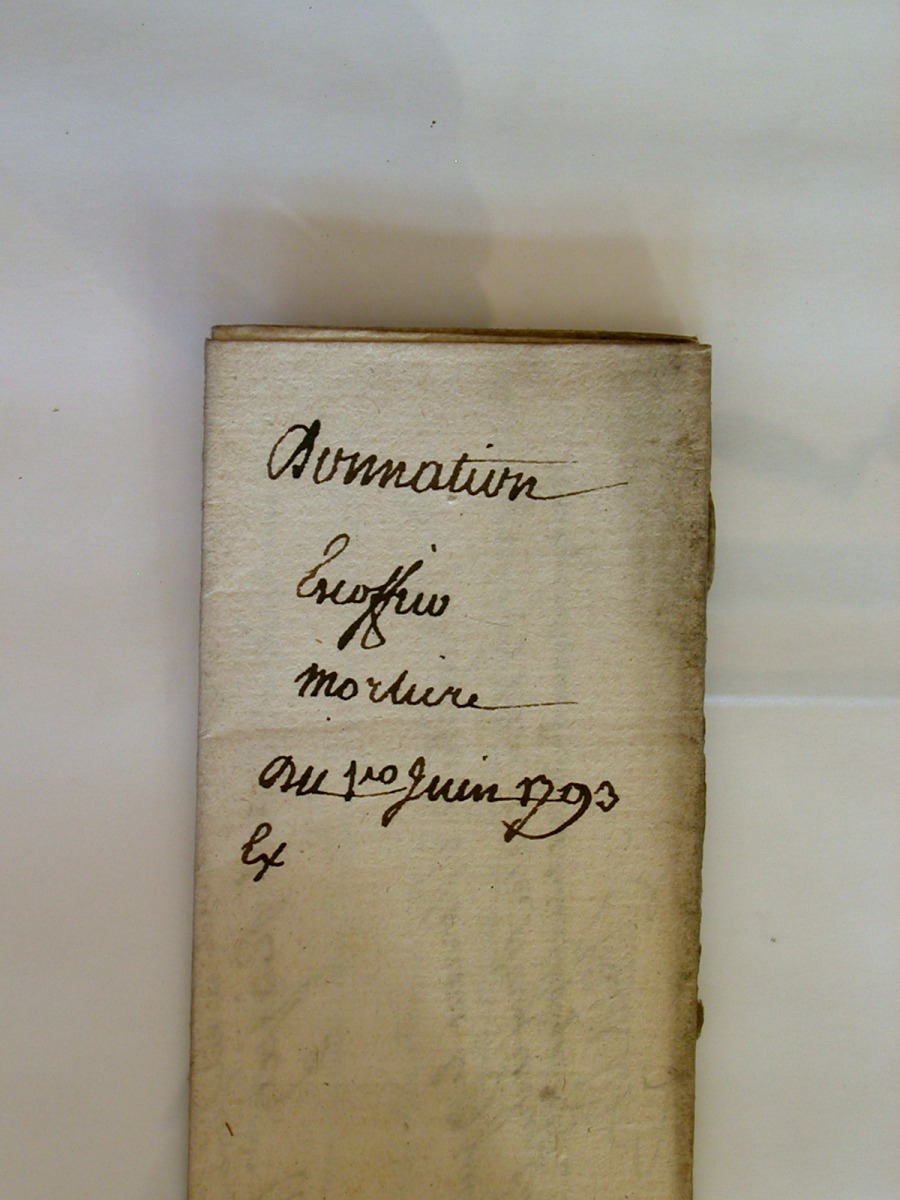 Donnation
Escoffier
mortiere
Du 1ro Juin 1793
Ex